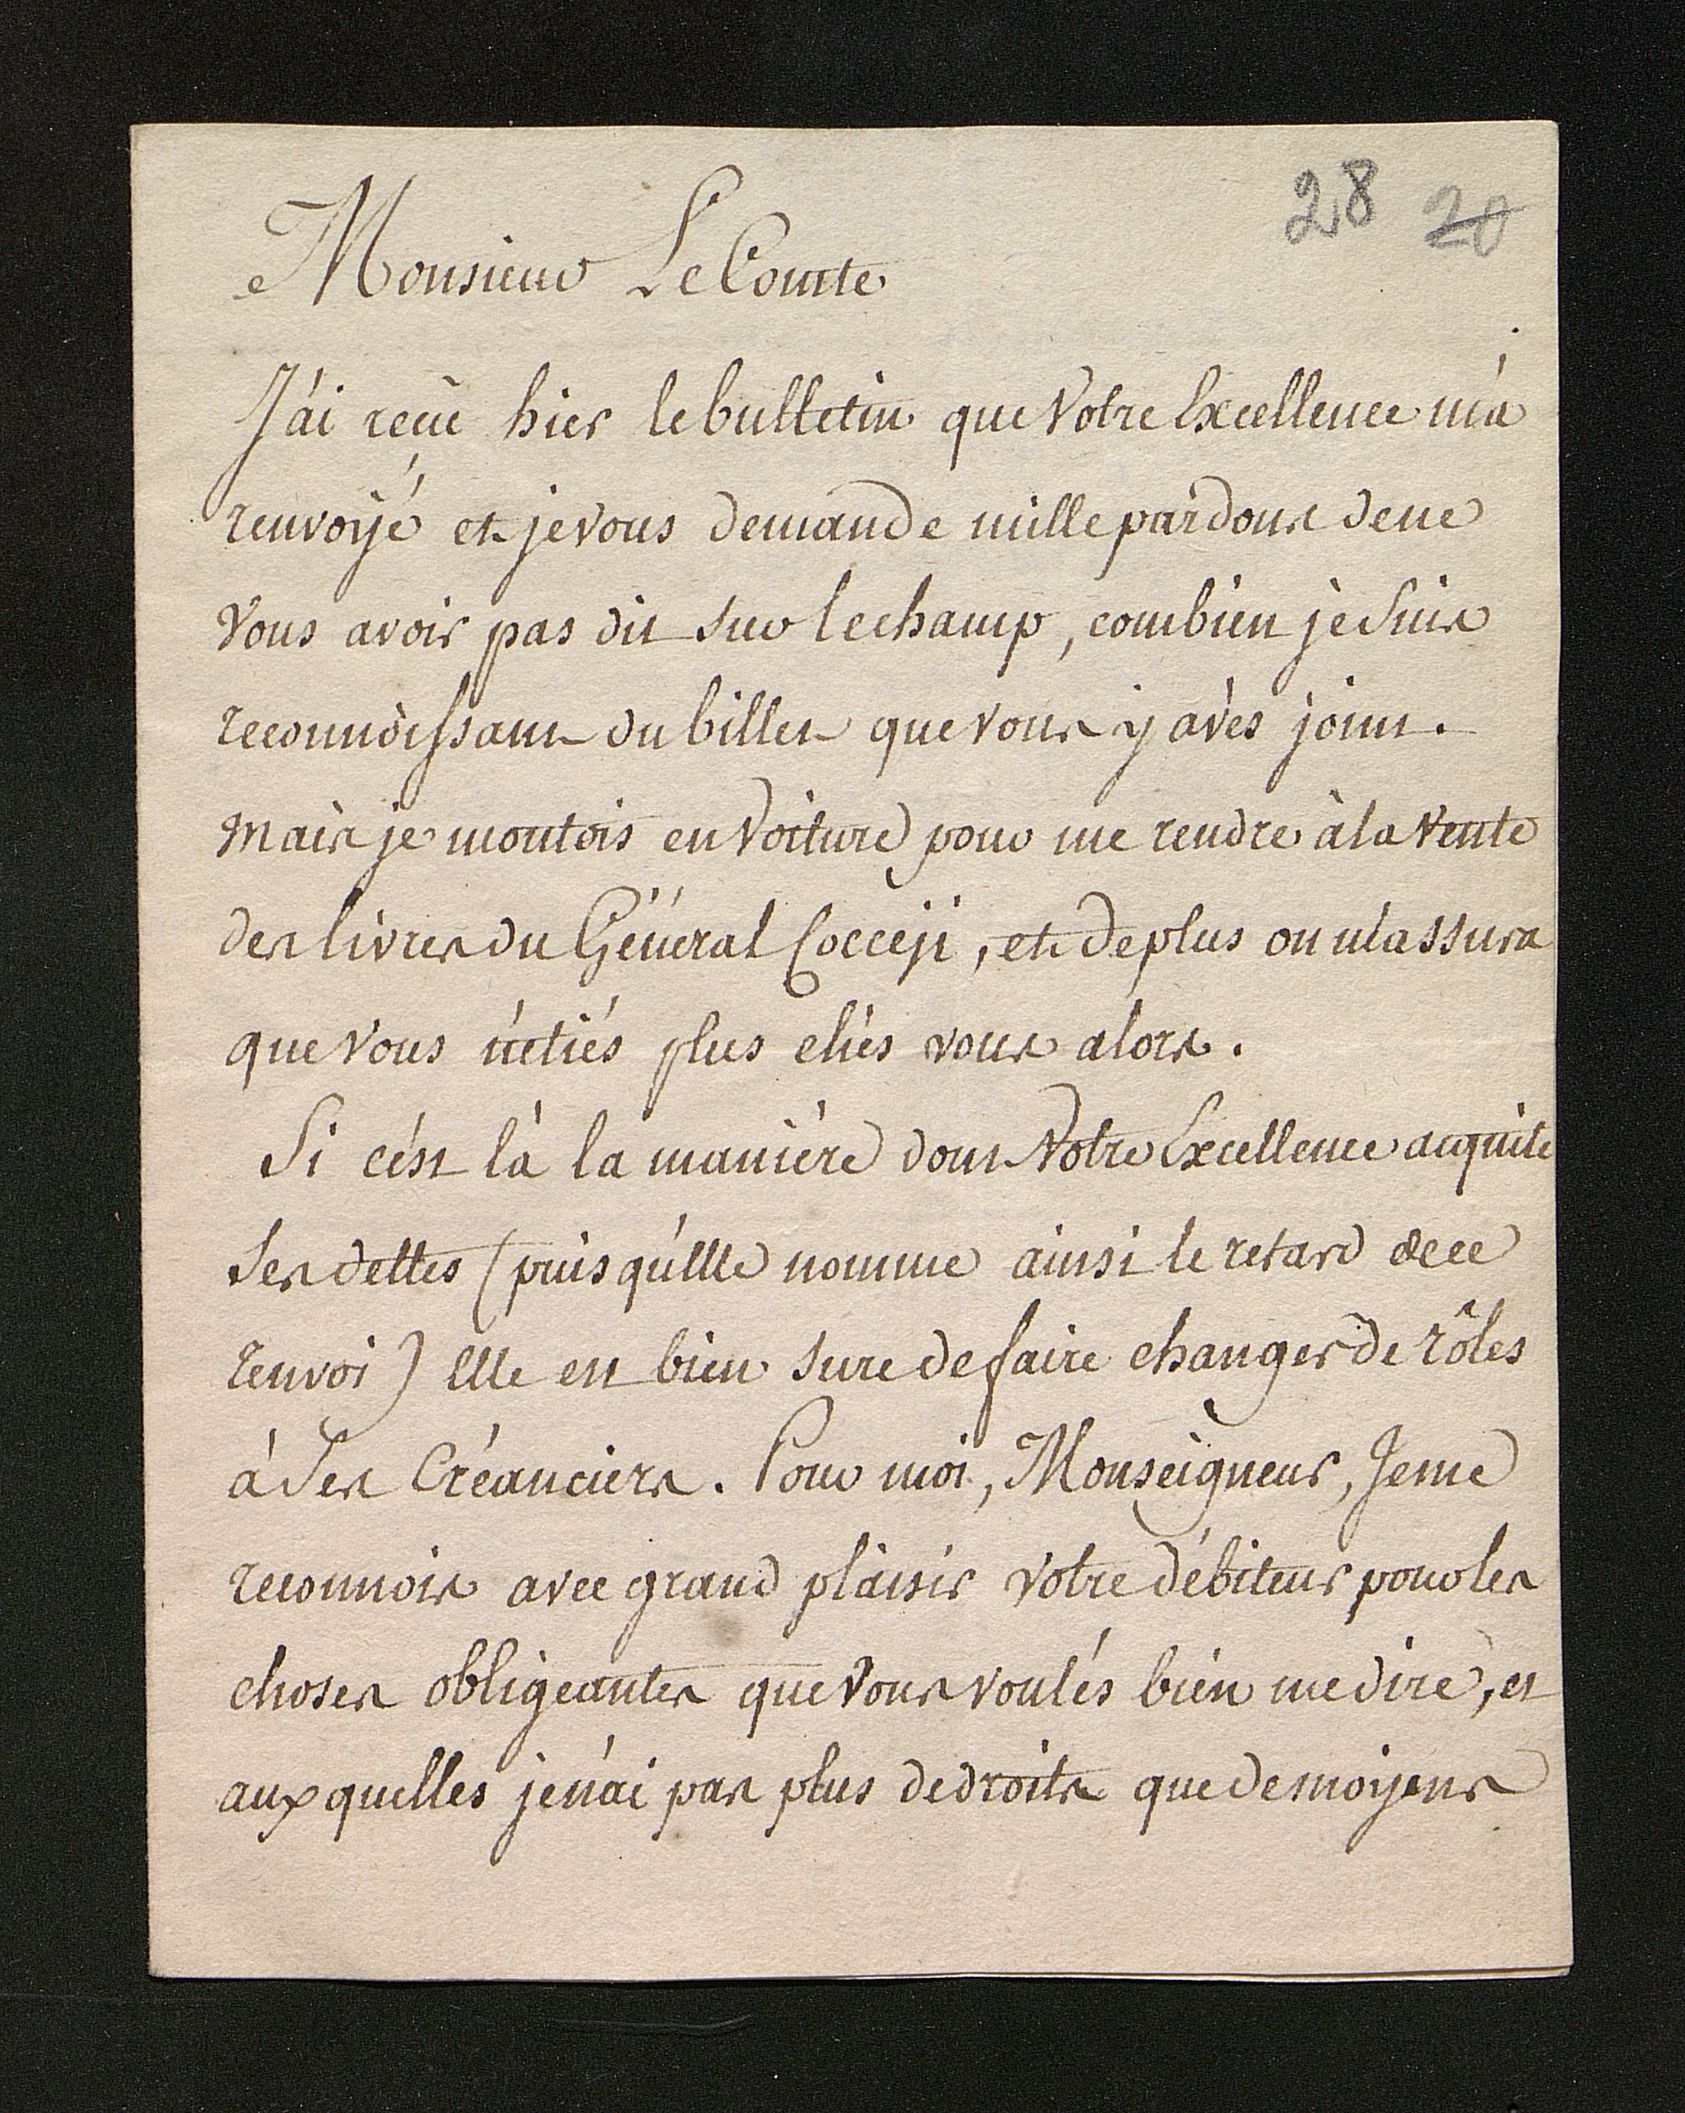 28 20
Monsieur Le Comte
J'ai reçüe hier le bulletin que Votre Excellence m'a
renvoÿé et je vous demande mille pardons de ne
vous avoir pas dit sur le champ, combien je suis
reconnoissant du billet que vous y avès joint.
mais je montois en voiture pour me rendre à la vente
des livres du Général Cocceji, et de plus on m'assura
que vous n'etiés plus chés vous alors.
Si c'est là la maniére dont Votre Excellence acquite
ses dettes (puisqu'Elle nomme ainsi le retard de ce
renvoi) Elle est bien sure de faire changer de rôles
à ses Créanciers. Pour moi, Monseigneur, Je me
reconnois avec grand plaisir votre débiteur pour les
choses obligeantes que vous voulés bien me dire, et
auxquelles je n'ai pas plus de droits que de moÿens